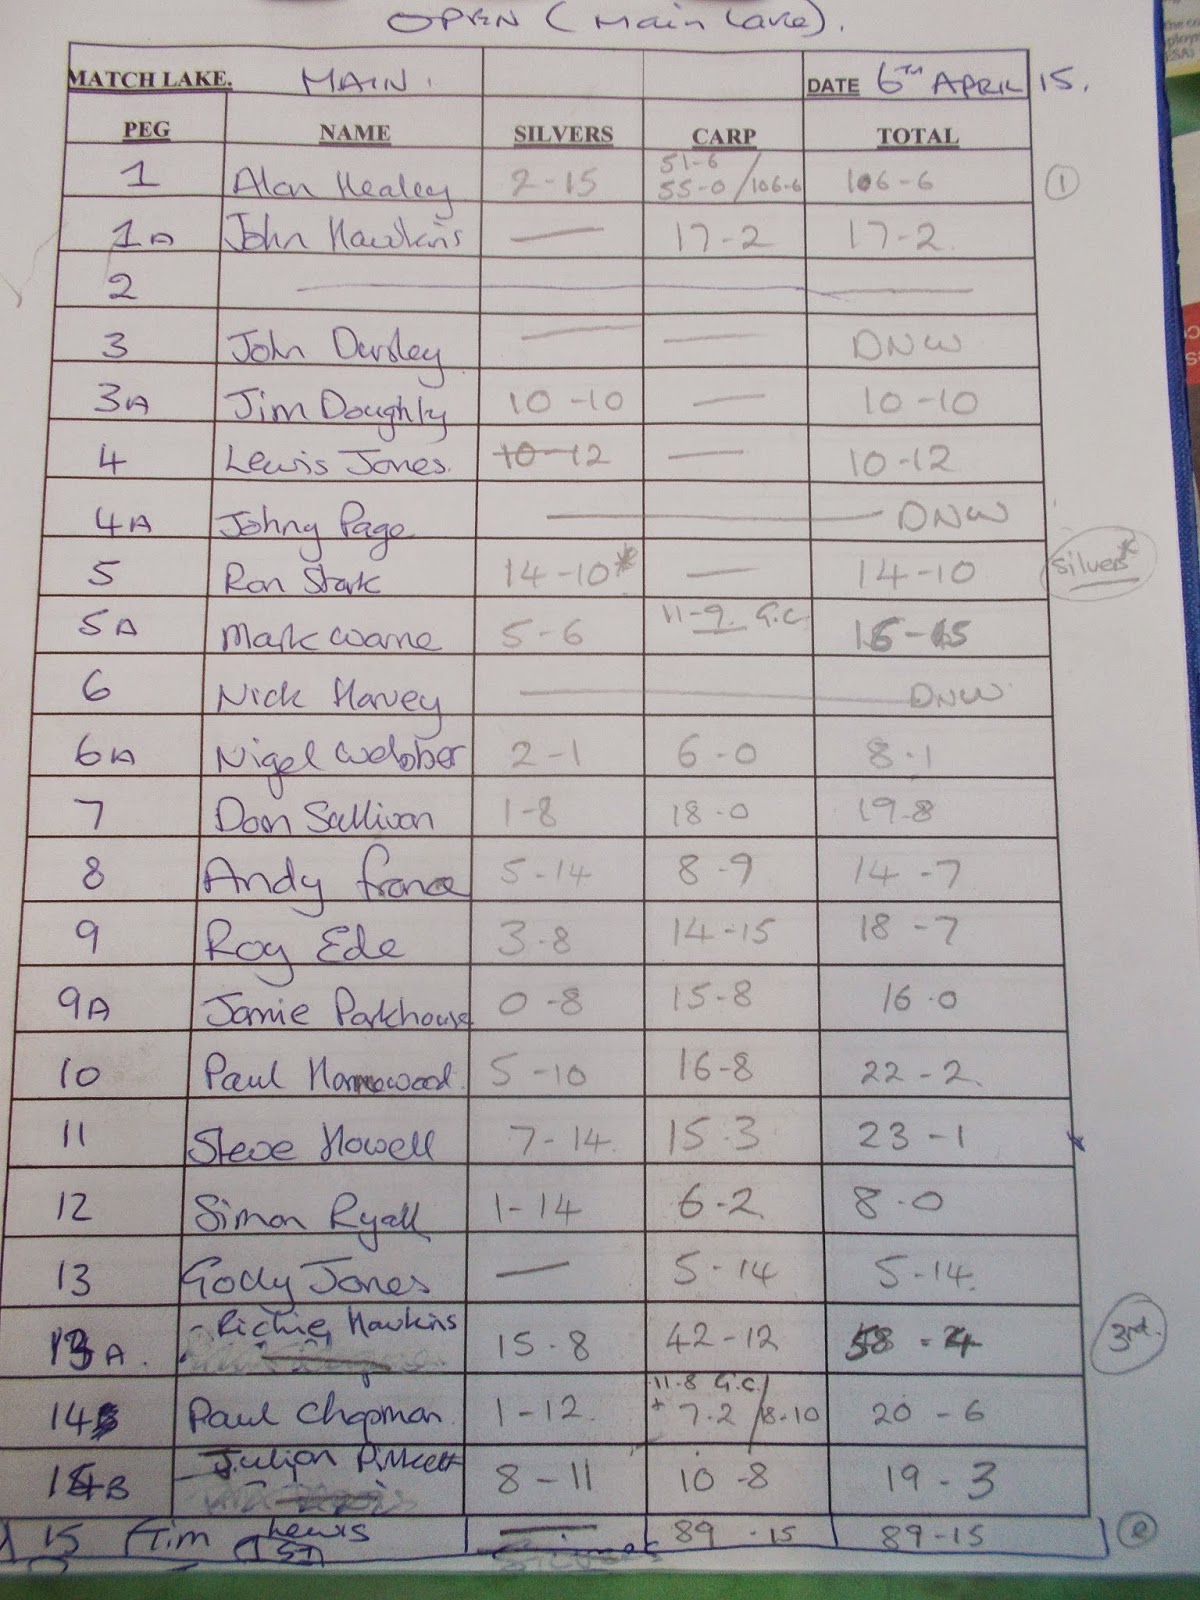 OPEN (Main Lake).
MATCH LAKE. MAIN. DATE 6TH APRIL 15.
PEG NAME SILVERS CARP TOTAL
1 Alan Healey 2-15 51-6 55-0/106-6 106-6 1
1A John Hawkins — 17-2 17-2
2 —
3 John Dursley — — DNW
3A Jim Doughty 10-10 — 10-10
4 Lewis Jones. 10-12 — 10-12
4A Johny Page — DNW
5 Ron Stark 14-10* — 14-10 Silvers*
5A Mark Warne 5-6 11-9. G.C 16-15
6 Nick Harvey — DNW
6A Nigel Webber 2-1 6-0 8-1
7 Dom Sullivan 1-8 18-0 19-8
8 Andy France 5-14 8-9 14-7
9 Roy Ede 3-8 14-15 18-7
9A Jamie Parkhouse 0-8 15-8 16-0
10 Paul Homewood. 5-10 16-8 22-2.
11 Steve Howell 7-14. 15-3 23-1
12 Simon Ryall 1-14 6-2 8-0
13 Gody Jones — 5-14 5-14.
13A. Richie Hawkins 15-8 42-12 58-4 3rd.
14 Paul Chapman. 1-12. 11-8 G.C/ + 7-2/18-10 20-6
14B Julian 8-11 10-8 19-3
15 Tim Lewis — 89-15 89-15 2